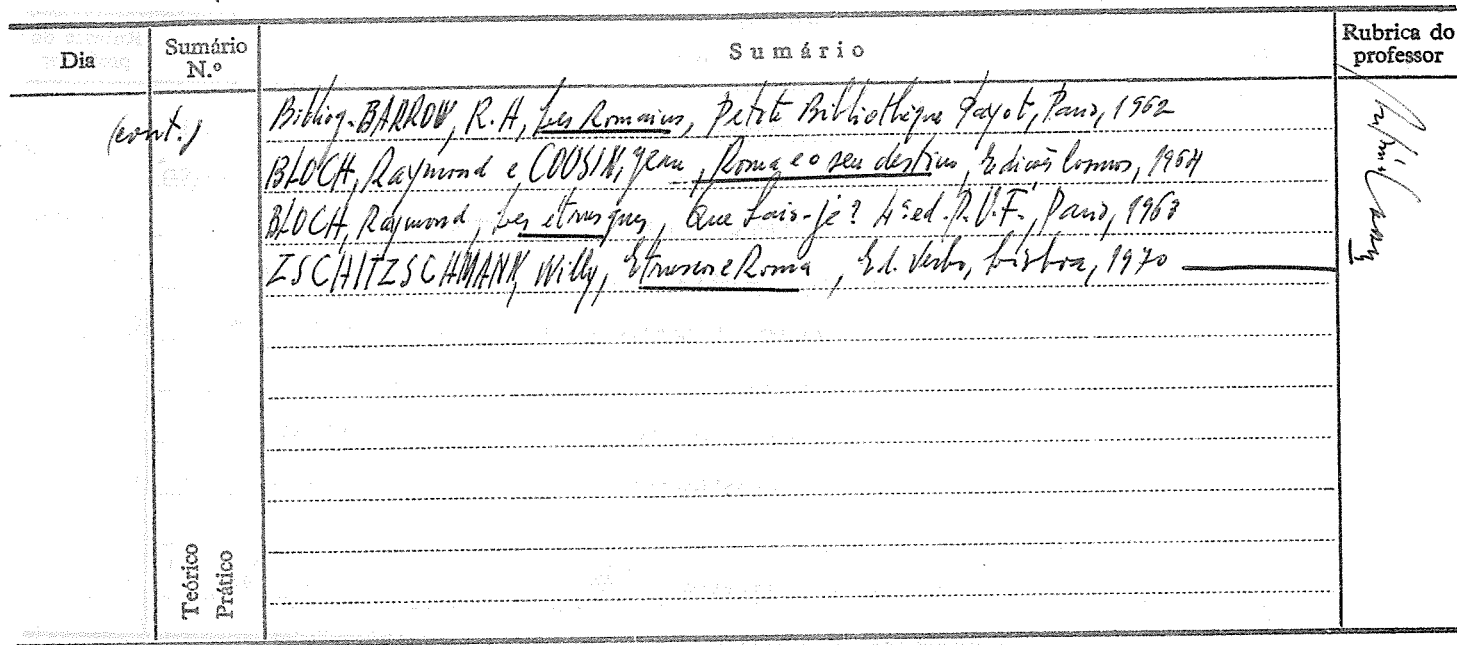 Dia
Sumário N.º
Sumário
Rubrica do professor
(cont.)
Bibliog. BARROW, R. H, Les Romains, Petite Bibliothèque Payot, Paris, 1962
BLOCH, Raymond e COUSIN, Jean, Roma e o seu destino, Edições Cosmos, 1964
BLOCH, Raymond, Les étrusques, Que Sais-je? 4ª ed. P.U.F., Paris, 1968
ZSCHITZSCHMANN, Willy, Etruscos e Roma, Ed. Verbo, Lisboa, 1970
Teórico
Prático